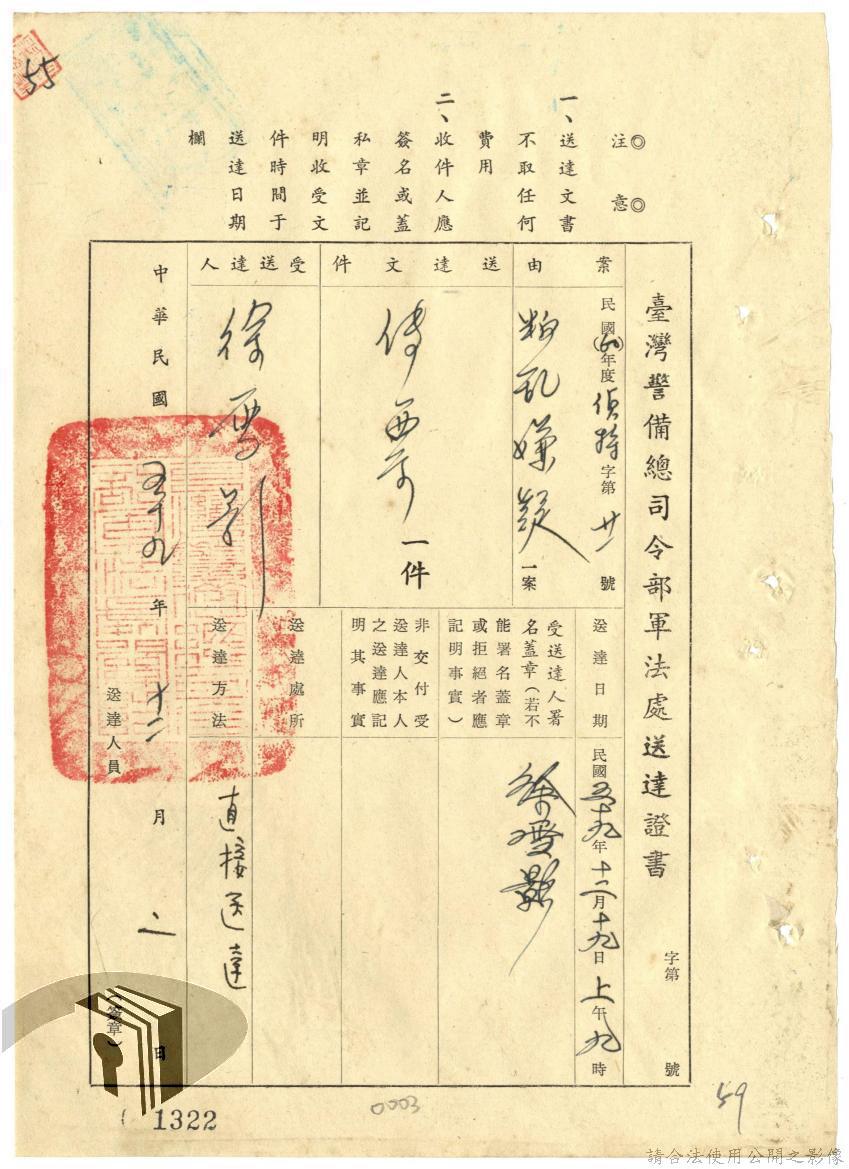 臺灣警備總司令部軍法處送達證書
字第 號
◎注意◎
一、送達文書
不取任何
費用
二、收件人應
簽名或蓋
私章並記
明收受文
件時間于
送達日期
欄
案由
民國 年度偵特字第廿一號
叛亂嫌疑一案
送達文件
傳票一件
受送達人
徐雪影
送達日期
民國五十九年十二月十九日上午九時
受送達人署
名蓋章(若不
能署名蓋章
或拒絕者應
記明事實)
徐雪影
非交付受
送達人本人
之送達應記
明其事實
送達處所
送達方法
直接送達
中華民國五十九年十二月 日
送達人員
(簽章)
55
1322
0003
59
請合法使用公開之影像